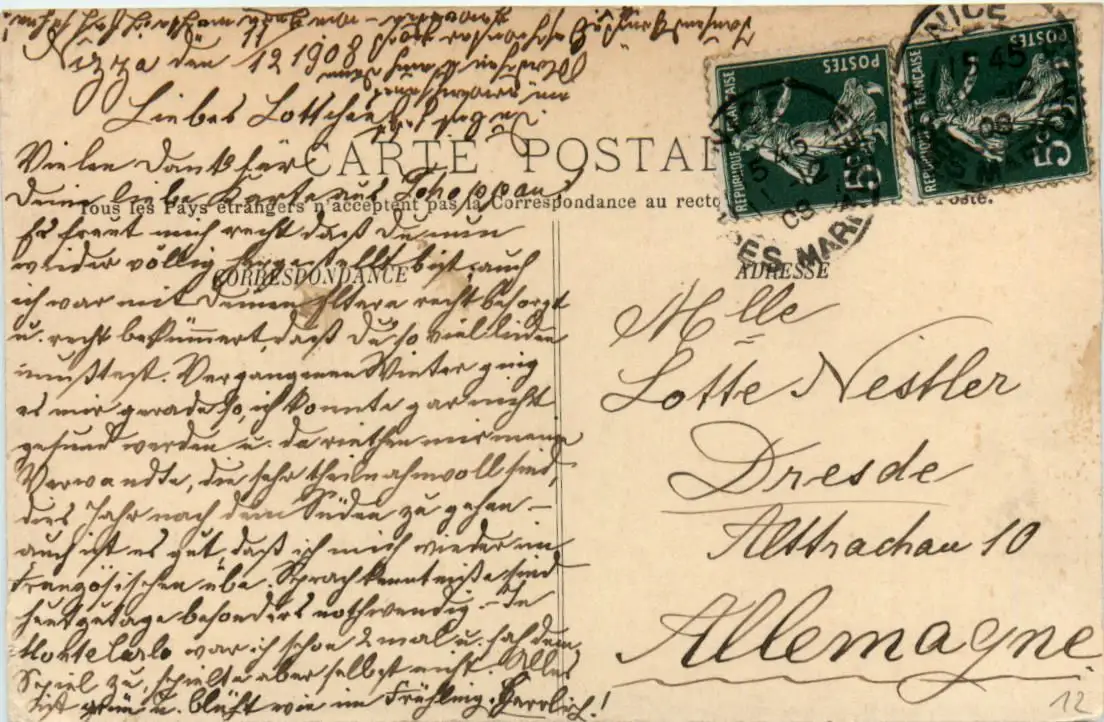 Nizza den 12 1908
Liebes Lottchen!
CARTE POSTALE
Vielen Dank für
Deine liebe Karte aus
Tous les Pays étrangers n'acceptent pas la Correspondance au recto
Es freut mich recht daß Du nun
wieder völlig hergestellt bist, auch
CORRESPONDANCE
ich war mit Deinen Eltern recht besorgt
u. recht bekümmert, daß Du so viel leiden
mußtest. Vergangenen Winter ging
es mir gerade so, ich konnte gar nicht
gesund werden u. da riethen mir meine
Verwandte, die sehr theilnahmvoll sind,
dies Jahr nach dem Süden zu gehen –
auch ist es gut, daß ich mich wieder im
Französischen übe. Sprachkenntniße sind
heutzutage besonders nothwendig. – In
Monte Carlo war ich schon 2 mal u. sah dem
Spiel zu, spielte aber selbst nicht. Alles
ist grün u. blüht wie im Frühling. Herrlich!
REPUBLIQUE FRANÇAISE
POSTES
5
REPUBLIQUE FRANÇAISE
POSTES
5
NICE
15 45
ADRESSE
Mlle
Lotte Nestler
Dresde
Alttrachau 10
Allemagne
12